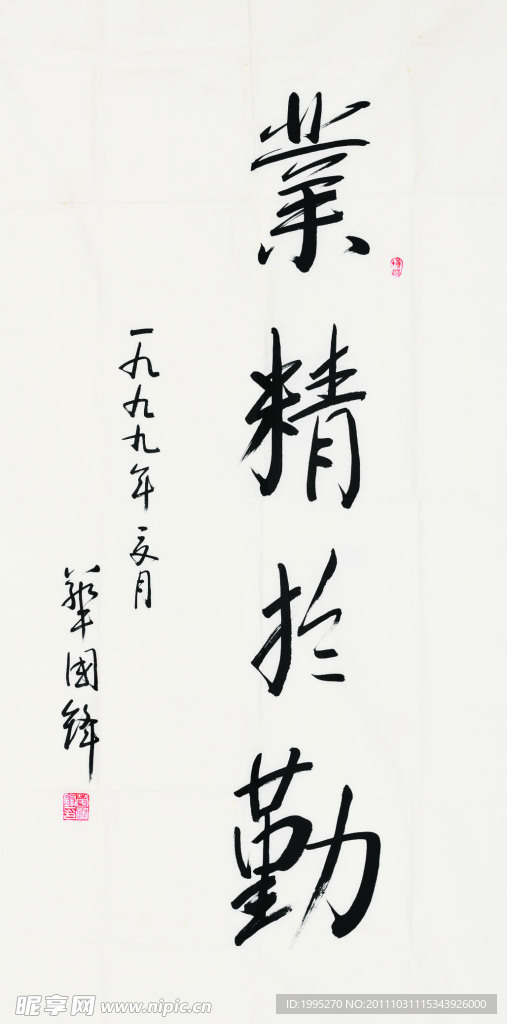 業精於勤
一九九九年夏月
華國鋒
昵享网 www.nipic.cn
ID:1995270 NO:20111031115343926000